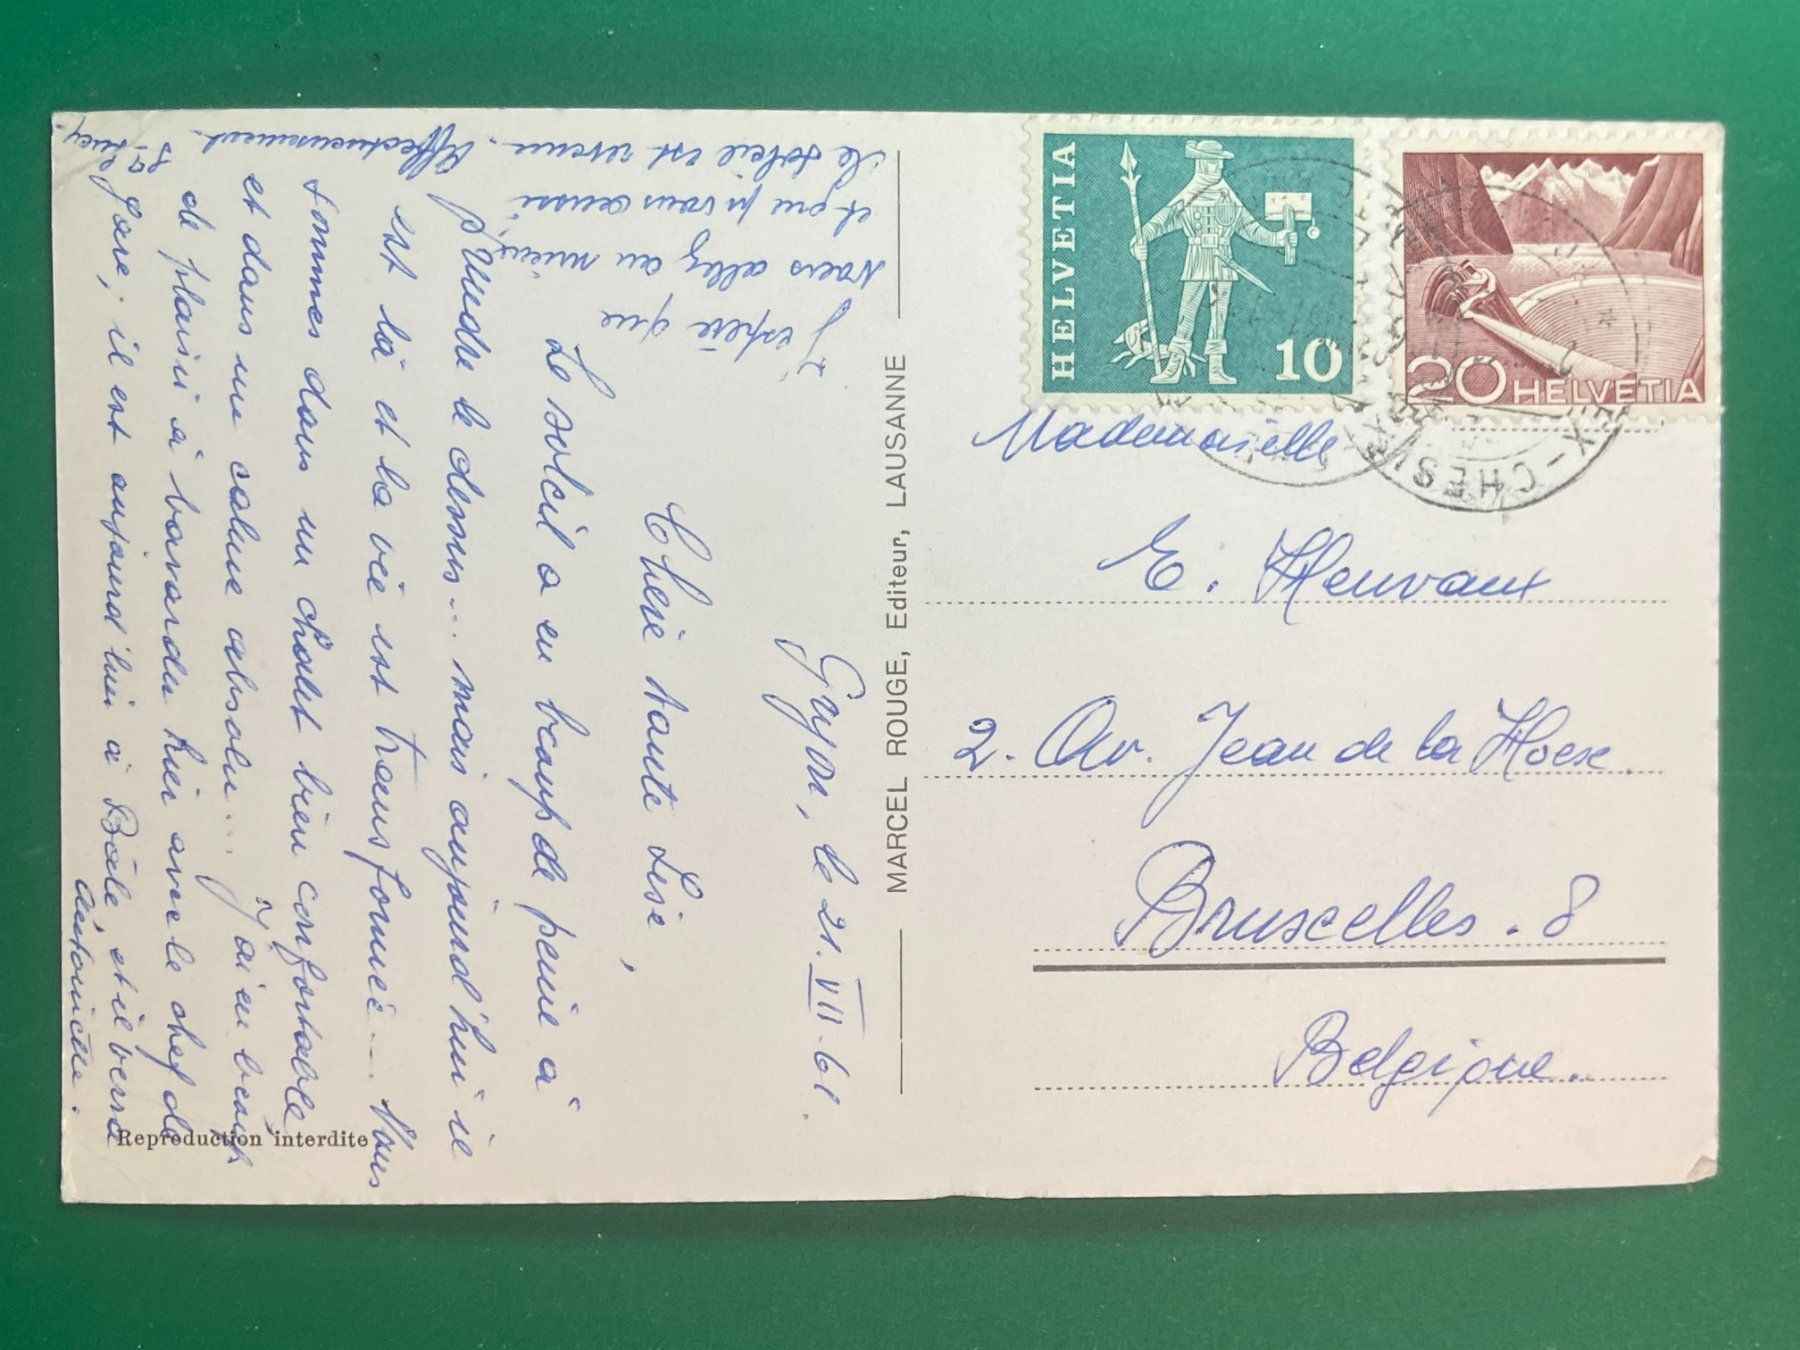 Gryon, le 21.VII.61.
Chère tante Lise,
Le soleil a eu beaucoup de peine à
prendre le dessus... mais aujourd'hui il
est là et la vie est transformée.... Nous
sommes dans un chalet bien confortable
et dans un calme absolu... J'ai eu beaucoup
de plaisir à bavarder hier avec le chef de
gare; il est aujourd'hui à Bâle, et il verra
J'espère que
vous allez au mieux
et que pr vous aussi
le soleil est revenu. Affectueusement.
MARCEL ROUGE, Editeur, LAUSANNE
Reproduction interdite
HELVETIA
10
20 HELVETIA
X-CHESI
Mademoiselle
E. Heuvaux
2. Av. Jean de la Hoese.
Bruxelles. 8
Belgique.